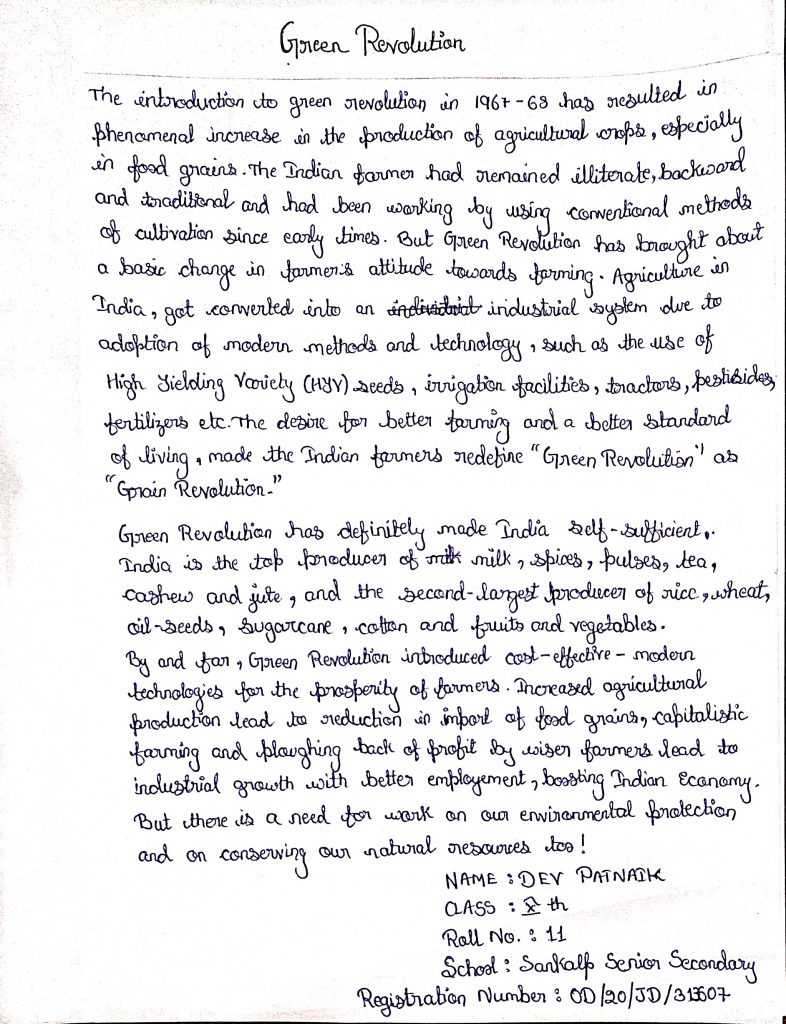 Green Revolution
The introduction to green revolution in 1967-68 has resulted in
phenomenal increase in the production of agricultural crops, especially
in food grains. The Indian farmer had remained illiterate, backward
and traditional and had been working by using conventional methods
of cultivation since early times. But Green Revolution has brought about
a basic change in farmer's attitude towards farming. Agriculture in
India, got converted into an industrial system due to
adoption of modern methods and technology, such as the use of
High Yielding Variety (HYV) seeds, irrigation facilities, tractors, pestisides,
fertilizers etc. The desire for better farming and a better standard
of living, made the Indian farmers redefine "Green Revolution" as
"Grain Revolution."
Green Revolution has definitely made India self-sufficient,.
India is the top producer of milk, spices, pulses, tea,
cashew and jute, and the second-largest producer of rice, wheat,
oil-seeds, sugarcane, cotton and fruits and vegetables.
By and far, Green Revolution introduced cost-effective-modern
technologies for the prosperity of farmers. Increased agricultural
production lead to reduction in import of food grains, capitalistic
farming and ploughing back of profit by wiser farmers lead to
industrial growth with better employement, boosting Indian Economy.
But there is a need for work on our environmental protection
and on conserving our natural resources too!
NAME : DEV PATNAIK
CLASS : X th
Roll No. : 11
School : Sankalp Senior Secondary
Registration Number : OD/20/JD/